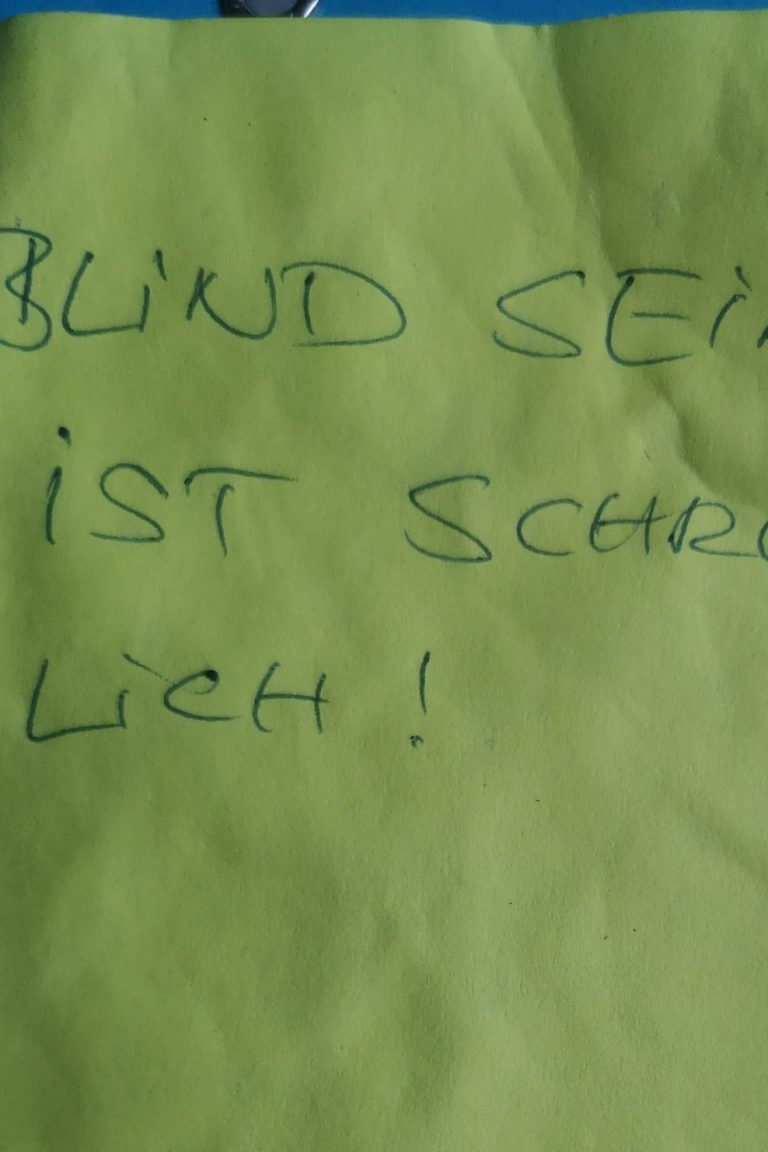 BLIND SEI
IST SCHR
LICH!